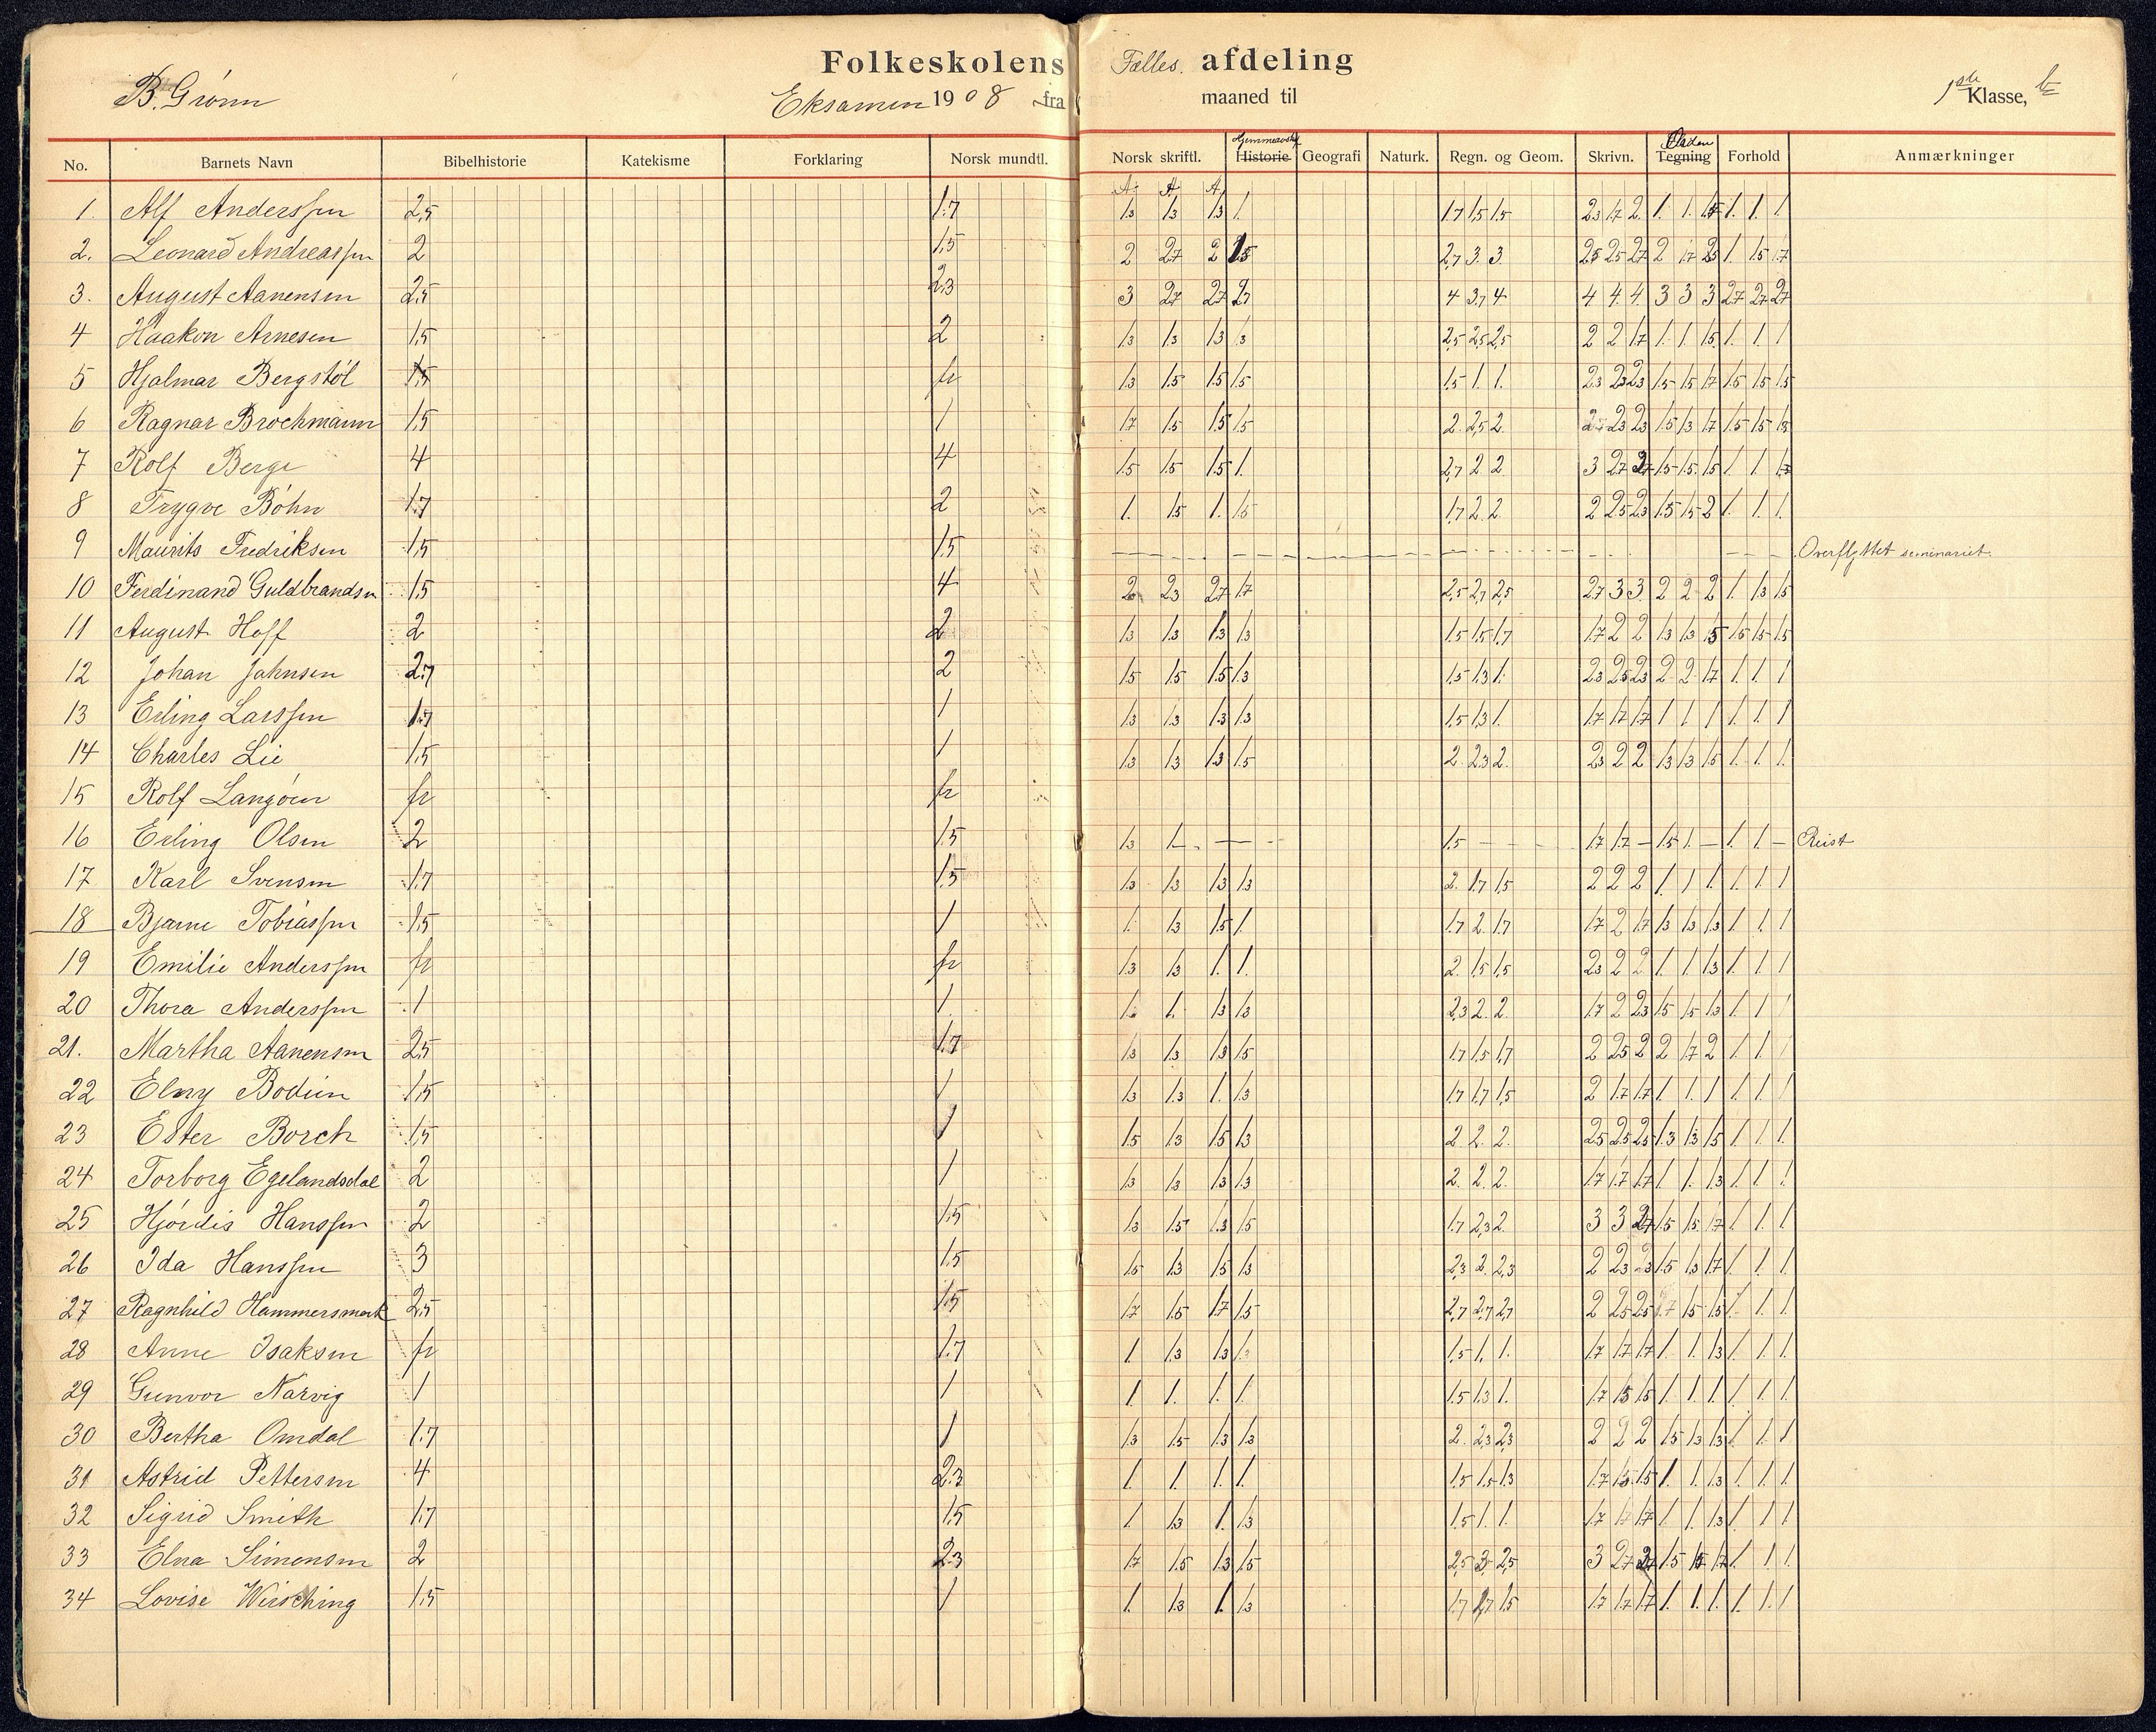 Folkeskolens Fælles. afdeling
B. Grönn Eksamen 1908 fra maaned til 1ste Klasse, b
No. Barnets Navn Bibelhistorie Katekisme Forklaring Norsk mundtl. Norsk skriftl. Hjemmearb. Historie Geografi Naturk. Regn. og Geom. Skrivn. Orden Tegning Forhold Anmærkninger
A. A. A.
1. Alf Anderssen 2,5 1.7 1.3 1.3 1.3 1. 1.7 1,5 1,5 2.3 1.7 2. 1. 1. 1.5 1. 1. 1
2. Leonard Andreassen 2 1.5 2 2.7 2 1.5 2,7 3. 3. 2.5 2.5 2.7 2 1.7 2.5 1. 1.5 1.7
3. August Aanensen 2,5 2,3 3 2.7 2.7 2.7 4 3,7 4 4 4. 4. 3 3 3 2.7 2.7 2.7
4 Haakon Arnesen 1.5 2 1.3 1.3 1.3 1.3 2,5 2,5 2,5 2 2 1.7 1. 1 1.5 1. 1 1
5 Hjalmar Bergstöl 1.5 fr 1.3 1.5 1.5 1.5 1.5 1. 1. 2.3 2.3 2.3 1.5 1.5 1.7 1.5 1.5 1.5
6 Ragnar Brochmann 1.5 1 1.7 1.5 1.5 1.5 2. 2,5 2. 2.3 2.3 1.5 1.3 1.7 1.5 1.5 1.8
7 Rolf Berge 4 4 1.5 1.5 1.5 1. 2,7 2 2 3 2.7 2.7 1.5 1.5 1.5 1. 1 1.7
8 Trygve Böhn 1.7 2 1. 1.5 1. 1.5 1.7 2. 2. 2 2.5 2.3 1.5 1.5 2 1. 1. 1.
9 Maurits Fredriksen 1.5 1.5 Overflyttet seminariet.
10 Ferdinand Guldbrandsen 1.5 4 2 2.3 2.7 1.7 2,5 2,7 2,5 2.7 3 3. 2 2 2 1. 1.3 1.5
11 August Hoff 2 2 1.3 1.3 1.3 1.3 1.5 1.5 1.7 1.7 2 2 1.3 1.3 1.5 1.5 1.5 1.5
12 Johan Jahnsen 2.7 2 1.5 1.5 1.5 1.3 1.5 1.3 1. 2.3 2.5 2.3 2. 2. 1.7 1. 1. 1
13 Erling Larssen 1.7 1 1.3 1.3 1.3 1.3 1.5 1.3 1. 1.7 1.7 1.7 1 1 1 1. 1. 1
14 Charles Lie 1.5 1 1.3 1.3 1.3 1.5 2. 2.3 2. 2.3 2 2 1.3 1.3 1.5 1. 1. 1.
15 Rolf Langöen fr fr
16 Erling Olsen 2 1.5 1.3 1. — 1.5 - - 1.7 1.7 — 1.5 1. — 1. 1 — Reist
17 Karl Svensen 1.7 1.5 1.3 1.3 1.3 1.3 2. 1.7 1.5 2 2 2 1. 1 1. 1. 1 1
18 Bjarne Tobiassen 1.5 1 1. 1.3 1.5 1. 1.7 2. 1.7 1.7 2 1.7 1.3 1.3 1.3 1. 1. 1
19 Emilie Anderssen fr fr 1.3 1.3 1. 1. 2. 1.5 1.5 2.3 2 2 1. 1 1.3 1. 1 1
20 Thora Anderssen 1 1. 1. 1. 1.3 1.3 2,3 2. 2. 1.7 2 2.3 1.5 1.5 1.3 1. 1. 1
21. Martha Aanensen 2,5 1.7 1.3 1.3 1.3 1.5 1.7 1.5 1.7 2 2.5 2 2 1.7 2 1. 1. 1
22 Elny Bodien 1.5 1 1.3 1.3 1. 1.3 1.7 1.7 1.5 2 1.7 1.7 1 1. 1 1. 1. 1
23 Ester Borch 1.5 1 1.5 1.3 1.5 1.3 2. 2. 2. 2.5 2.5 2.5 1.3 1.3 1.5 1. 1. 1.
24 Torborg Egelandsdal 2 1 1.3 1.3 1.3 1.3 2. 2. 2. 1.7 1.7 1.7 1 1. 1.3 1. 1 1
25 Hjördis Hanssen 2 1.5 1.3 1.5 1.3 1.5 1.7 2,3 2. 3 3 2.7 1.5 1.5 1.7 1. 1. 1
26 Ida Hanssen 3 1.5 1.5 1.3 1.5 1.3 2,3 2. 2,3 2 2.3 2.3 1.5 1.3 1.7 1. 1 1
27 Ragnhild Hammersmark 2,5 1.5 1.7 1.5 1.7 1.5 2,7 2,7 2,7 2 2.5 2.5 1.7 1.5 1.5 1. 1. 1
28 Anne Isaksen fr 1.7 1 1.3 1.3 1.3 1.5 1. 1. 1.7 1.7 1.7 1. 1. 1.3 1. 1. 1
29 Gunvor Narvig 1 1 1 1. 1. 1. 1.5 1.3 1. 1.7 1.5 1.5 1. 1. 1 1. 1. 1
30 Bertha Omdal 1.7 1 1.3 1.5 1.3 1.3 2. 2,3 2,3 2 2 2 1.5 1.3 1.3 1. 1. 1
31 Astrid Pettersen 4 2.3 1. 1. 1. 1. 1.5 1.5 1.3 1.7 1.5 1.5 1. 1. 1.3 1. 1. 1
32 Sigrid Smith 1.7 1.5 1 1.3 1. 1.3 1.5 1. 1. 1.7 1.7 1.7 1 1. 1.3 1 1. 1
33 Elna Simonsen 2 2.3 1.7 1.5 1.3 1.5 2,5 3. 2,5 3 2.7 2.7 1.5 1.5 1.7 1. 1 1
34 Lovise Wirsching 1.5 1 1. 1.3 1. 1.3 1.7 1.7 1.5 1.7 1.7 1.7 1. 1. 1. 1. 1. 1